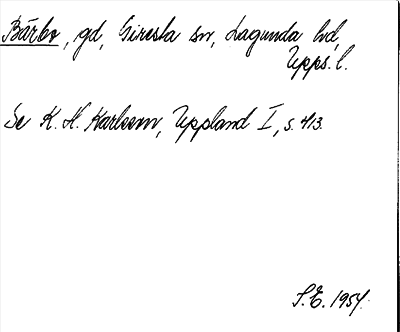 Bärbo, gd, Giresta sn, Lagunda hd,
Upps. l.
Se K. H. Karlsson, Uppland I, s. 413.
S.E. 1954.